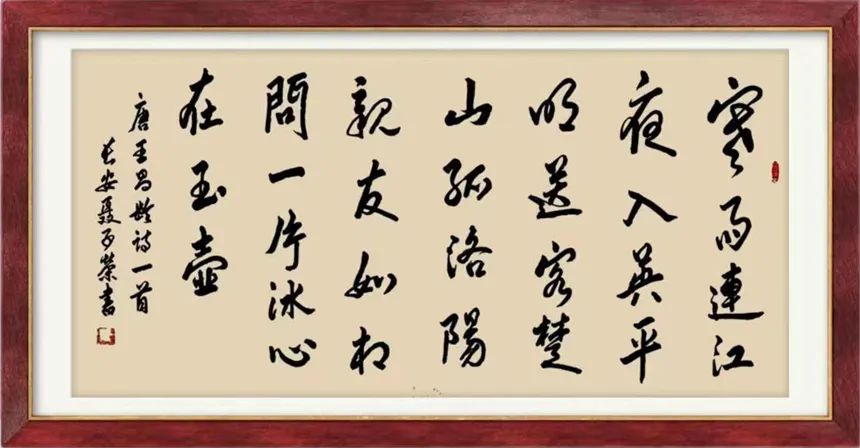 寒雨連江
夜入吳平
明送客楚
山孤洛陽
親友如相
問一片冰心
在玉壺
唐王昌齡詩一首
长安聂子榮書